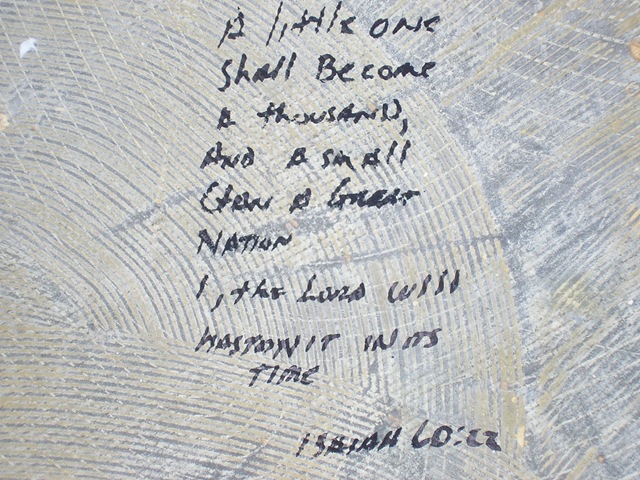 A little one
shall Become
A thousAND,
AND A smAll
ClAN A GreAt
NATION
I, the LORD will
HASTON IT IN ITS
TIME
ISAIAH 60:22